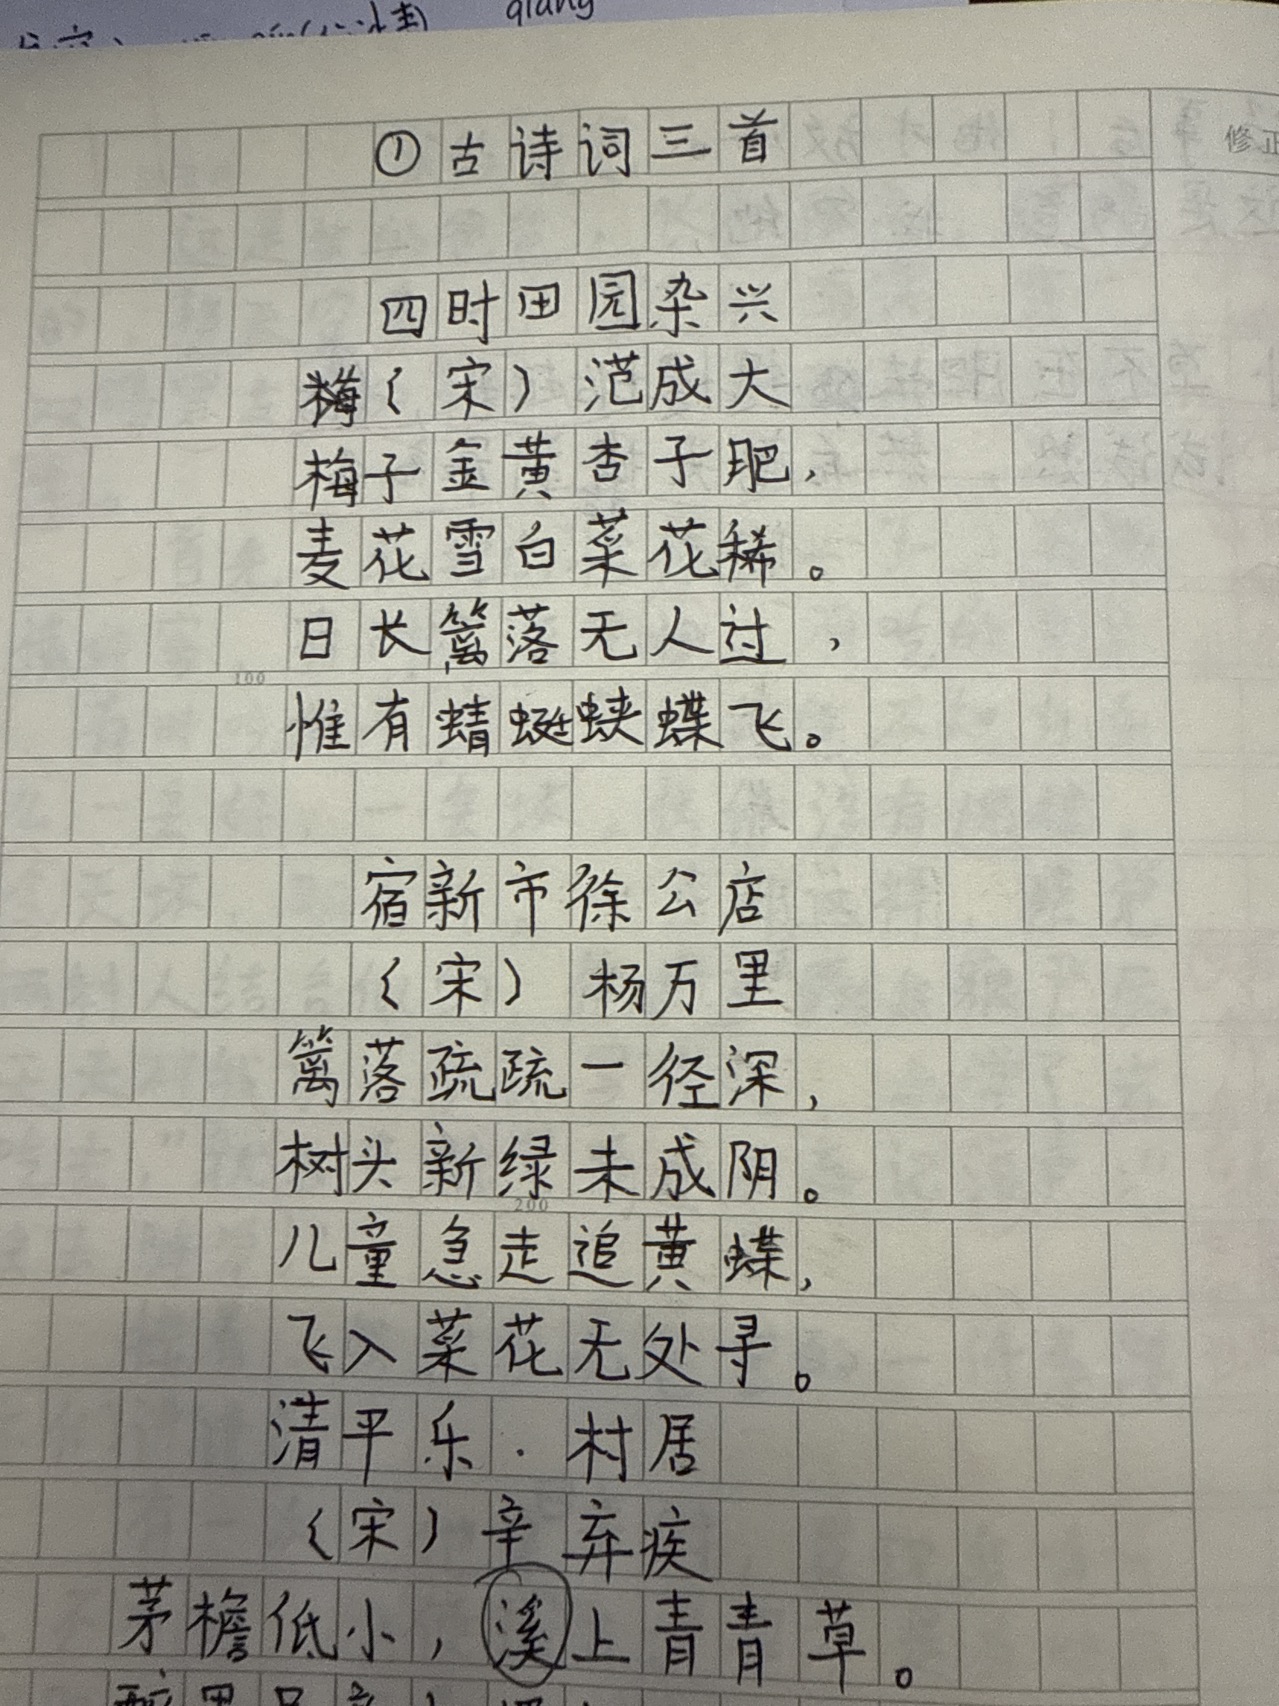 qiang
① 古诗词三首
修正
四时田园杂兴
梅（宋）范成大
梅子金黄杏子肥，
麦花雪白菜花稀。
日长篱落无人过，
100
惟有蜻蜓蛱蝶飞。
宿新市徐公店
（宋）杨万里
篱落疏疏一径深，
树头新绿未成阴。
200
儿童急走追黄蝶，
飞入菜花无处寻。
清平乐·村居
（宋）辛弃疾
茅檐低小，溪上青青草。